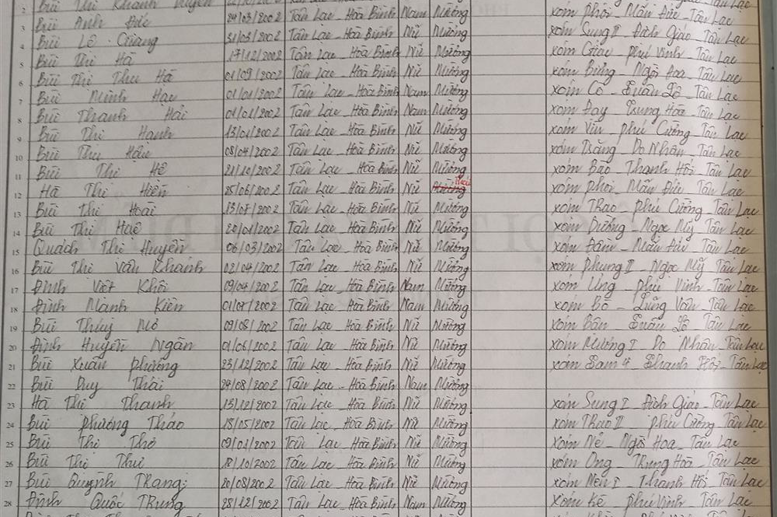 2 Bùi Thị Khánh Huyền
3 Bùi Anh Đức 29/03/2002 Tân Lạc - Hòa Bình Nam Mường xóm Phoi Mãn Đức Tân Lạc
4 Bùi Lê Giang 31/03/2002 Tân Lạc - Hòa Bình Nữ Mường xóm Sung II - Địch Giáo Tân Lạc
5 Bùi Thị Hà 17/12/2002 Tân Lạc - Hòa Bình Nữ Mường xóm Phú Vinh Tân Lạc
6 Bùi Thị Thu Hà 01/09/2002 Tân Lạc - Hòa Bình Nữ Mường xóm Bưng - Ngòi Hoa Tân Lạc
7 Bùi Minh Hạc 01/01/2002 Tân Lạc - Hòa Bình Nam Mường xóm Cò - Tân Lạc
8 Bùi Thanh Hải 01/01/2002 Tân Lạc - Hòa Bình Nam Mường xóm Đay Trung Hòa Tân Lạc
9 Bùi Thị Hạnh 13/01/2002 Tân Lạc - Hòa Bình Nữ Mường xóm Vin - Phú Cường Tân Lạc
10 Bùi Thị Hậu 08/04/2002 Tân Lạc - Hòa Bình Nữ Mường xóm Trăng Do Nhân Tân Lạc
11 Bùi Thị Hê 21/10/2002 Tân Lạc - Hòa Bình Nữ Mường xóm Bào Thanh Hối Tân Lạc
12 Hà Thị Hiền 25/06/2002 Tân Lạc - Hòa Bình Nữ xóm Phoi - Mãn Đức Tân Lạc
13 Bùi Thị Hoài 13/07/2002 Tân Lạc - Hòa Bình Nữ Mường xóm Thao Phú Cường Tân Lạc
14 Bùi Thị Huệ 20/01/2002 Tân Lạc - Hòa Bình Nữ Mường xóm - Ngọc Mỹ Tân Lạc
15 Quách Thị Huyền 06/03/2002 Tân Lạc - Hòa Bình Nữ Mường xóm - Tân Lạc
16 Bùi Thị Vân Khánh 02/04/2002 Tân Lạc - Hòa Bình Nữ Mường xóm Phung II - Ngọc Mỹ Tân Lạc
17 Đinh Viết Khôi 09/04/2002 Tân Lạc - Hòa Bình Nam Mường xóm Ưng - Phú Vinh Tân Lạc
18 Đinh Mạnh Kiên 01/07/2002 Tân Lạc - Hòa Bình Nam Mường xóm Bo - Lũng Vân Tân Lạc
19 Bùi Thúy Mơ 09/08/2002 Tân Lạc - Hòa Bình Nữ Mường xóm Bân Tân Lạc
20 Đinh Huyền Ngân 01/06/2002 Tân Lạc - Hòa Bình Nữ Mường xóm Mương I - Do Nhân Tân Lạc
21 Bùi Xuân Phương 25/12/2002 Tân Lạc - Hòa Bình Nữ Mường xóm Tam 4 Thanh Hối - Tân Lạc
22 Bùi Duy Thái 24/08/2002 Tân Lạc - Hòa Bình Nam Mường
23 Hà Thị Thanh 13/12/2002 Tân Lạc - Hòa Bình Nữ Mường xóm Sung I Địch Giáo - Tân Lạc
24 Bùi Phương Thảo 18/05/2002 Tân Lạc - Hòa Bình Nữ Mường xóm Thao II - Phú Cường Tân Lạc
25 Bùi Thị Thơ 09/01/2002 Tân Lạc - Hòa Bình Nữ Mường xóm Nẻ - Ngòi Hoa - Tân Lạc
26 Bùi Thị Thư 18/10/2002 Tân Lạc - Hòa Bình Nữ Mường xóm Ong - Trung Hòa Tân Lạc
27 Bùi Quỳnh Trang 20/08/2002 Tân Lạc - Hòa Bình Nữ Mường xóm Nen I - Thanh Hối Tân Lạc
28 Đinh Quốc Trung 28/12/2002 Tân Lạc - Hòa Bình Nam Mường xóm Kè Phú Vinh Tân Lạc